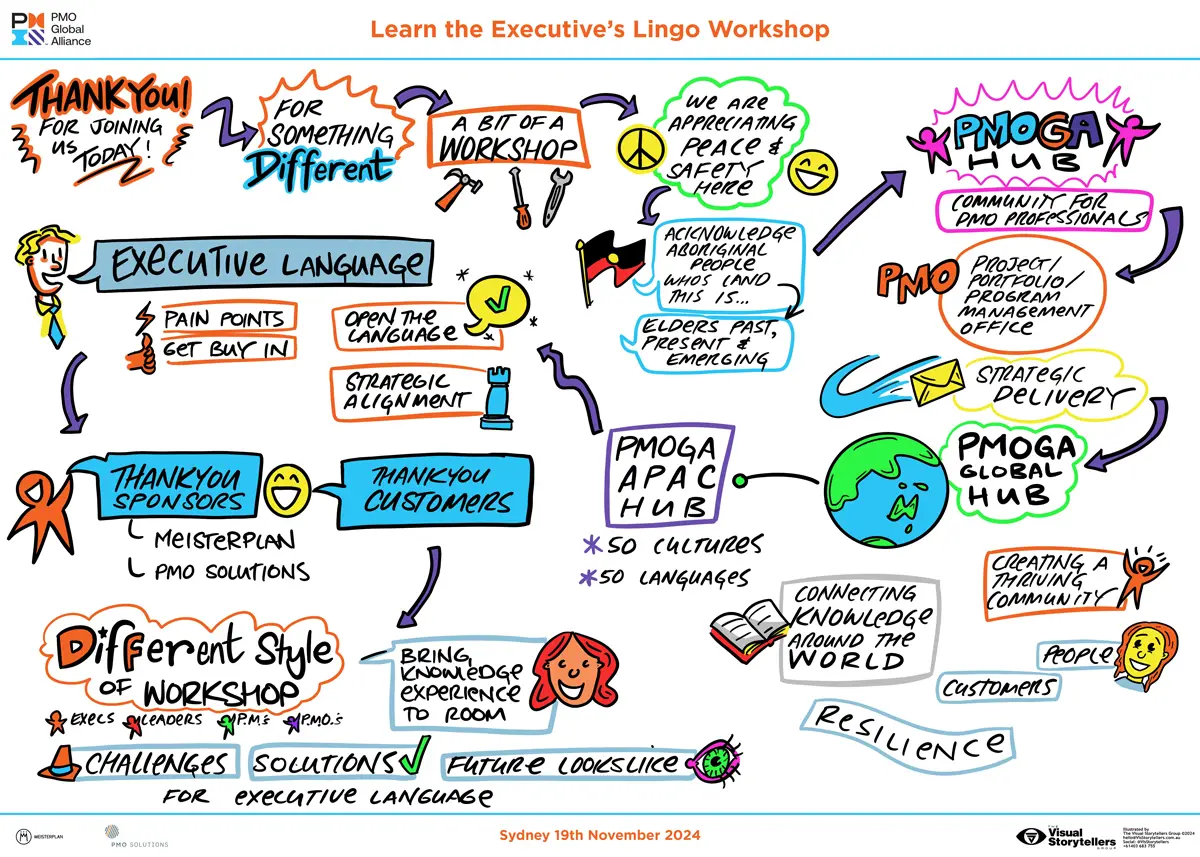 PMO
Global
Alliance
Learn the Executive's Lingo Workshop
THANKYOU!
FOR JOINING
US TODAY!
FOR
SOMETHING
Different
A BIT OF A
WORKSHOP
WE ARE
APPRECIATING
PEACE &
SAFETY
HERE
ACKNOWLEDGE
ABORIGINAL
PEOPLE
WHOS LAND
THIS IS...
ELDERS PAST,
PRESENT &
EMERGING
PMOGA
HUB
COMMUNITY FOR
PMO PROFESSIONALS
PMO
PROJECT/
PORTFOLIO/
PROGRAM
MANAGEMENT
OFFICE
STRATEGIC
DELIVERY
PMOGA
GLOBAL
HUB
PMOGA
APAC
HUB
*50 CULTURES
*50 LANGUAGES
EXECUTIVE LANGUAGE
PAIN POINTS
GET BUY IN
OPEN THE
LANGUAGE
STRATEGIC
ALIGNMENT
THANKYOU
SPONSORS
MEISTERPLAN
PMO SOLUTIONS
THANKYOU
CUSTOMERS
CREATING A
THRIVING
COMMUNITY
PEOPLE
CUSTOMERS
CONNECTING
KNOWLEDGE
AROUND THE
WORLD
RESILIENCE
DiFFerent Style
OF WORKSHOP
EXECS LEADERS P.M.s P.M.O.s
BRING
KNOWLEDGE
EXPERIENCE
TO ROOM
CHALLENGES SOLUTIONS FUTURE LOOKSLIKE
FOR EXECUTIVE LANGUAGE
MEISTERPLAN
PMO SOLUTIONS
Sydney 19th November 2024
THE
Visual
Storytellers
GROUP
Illustrated by
The Visual Storytellers Group ©2024
hello@VisStorytellers.com.au
Social: @VisStorytellers
+61403 683 755